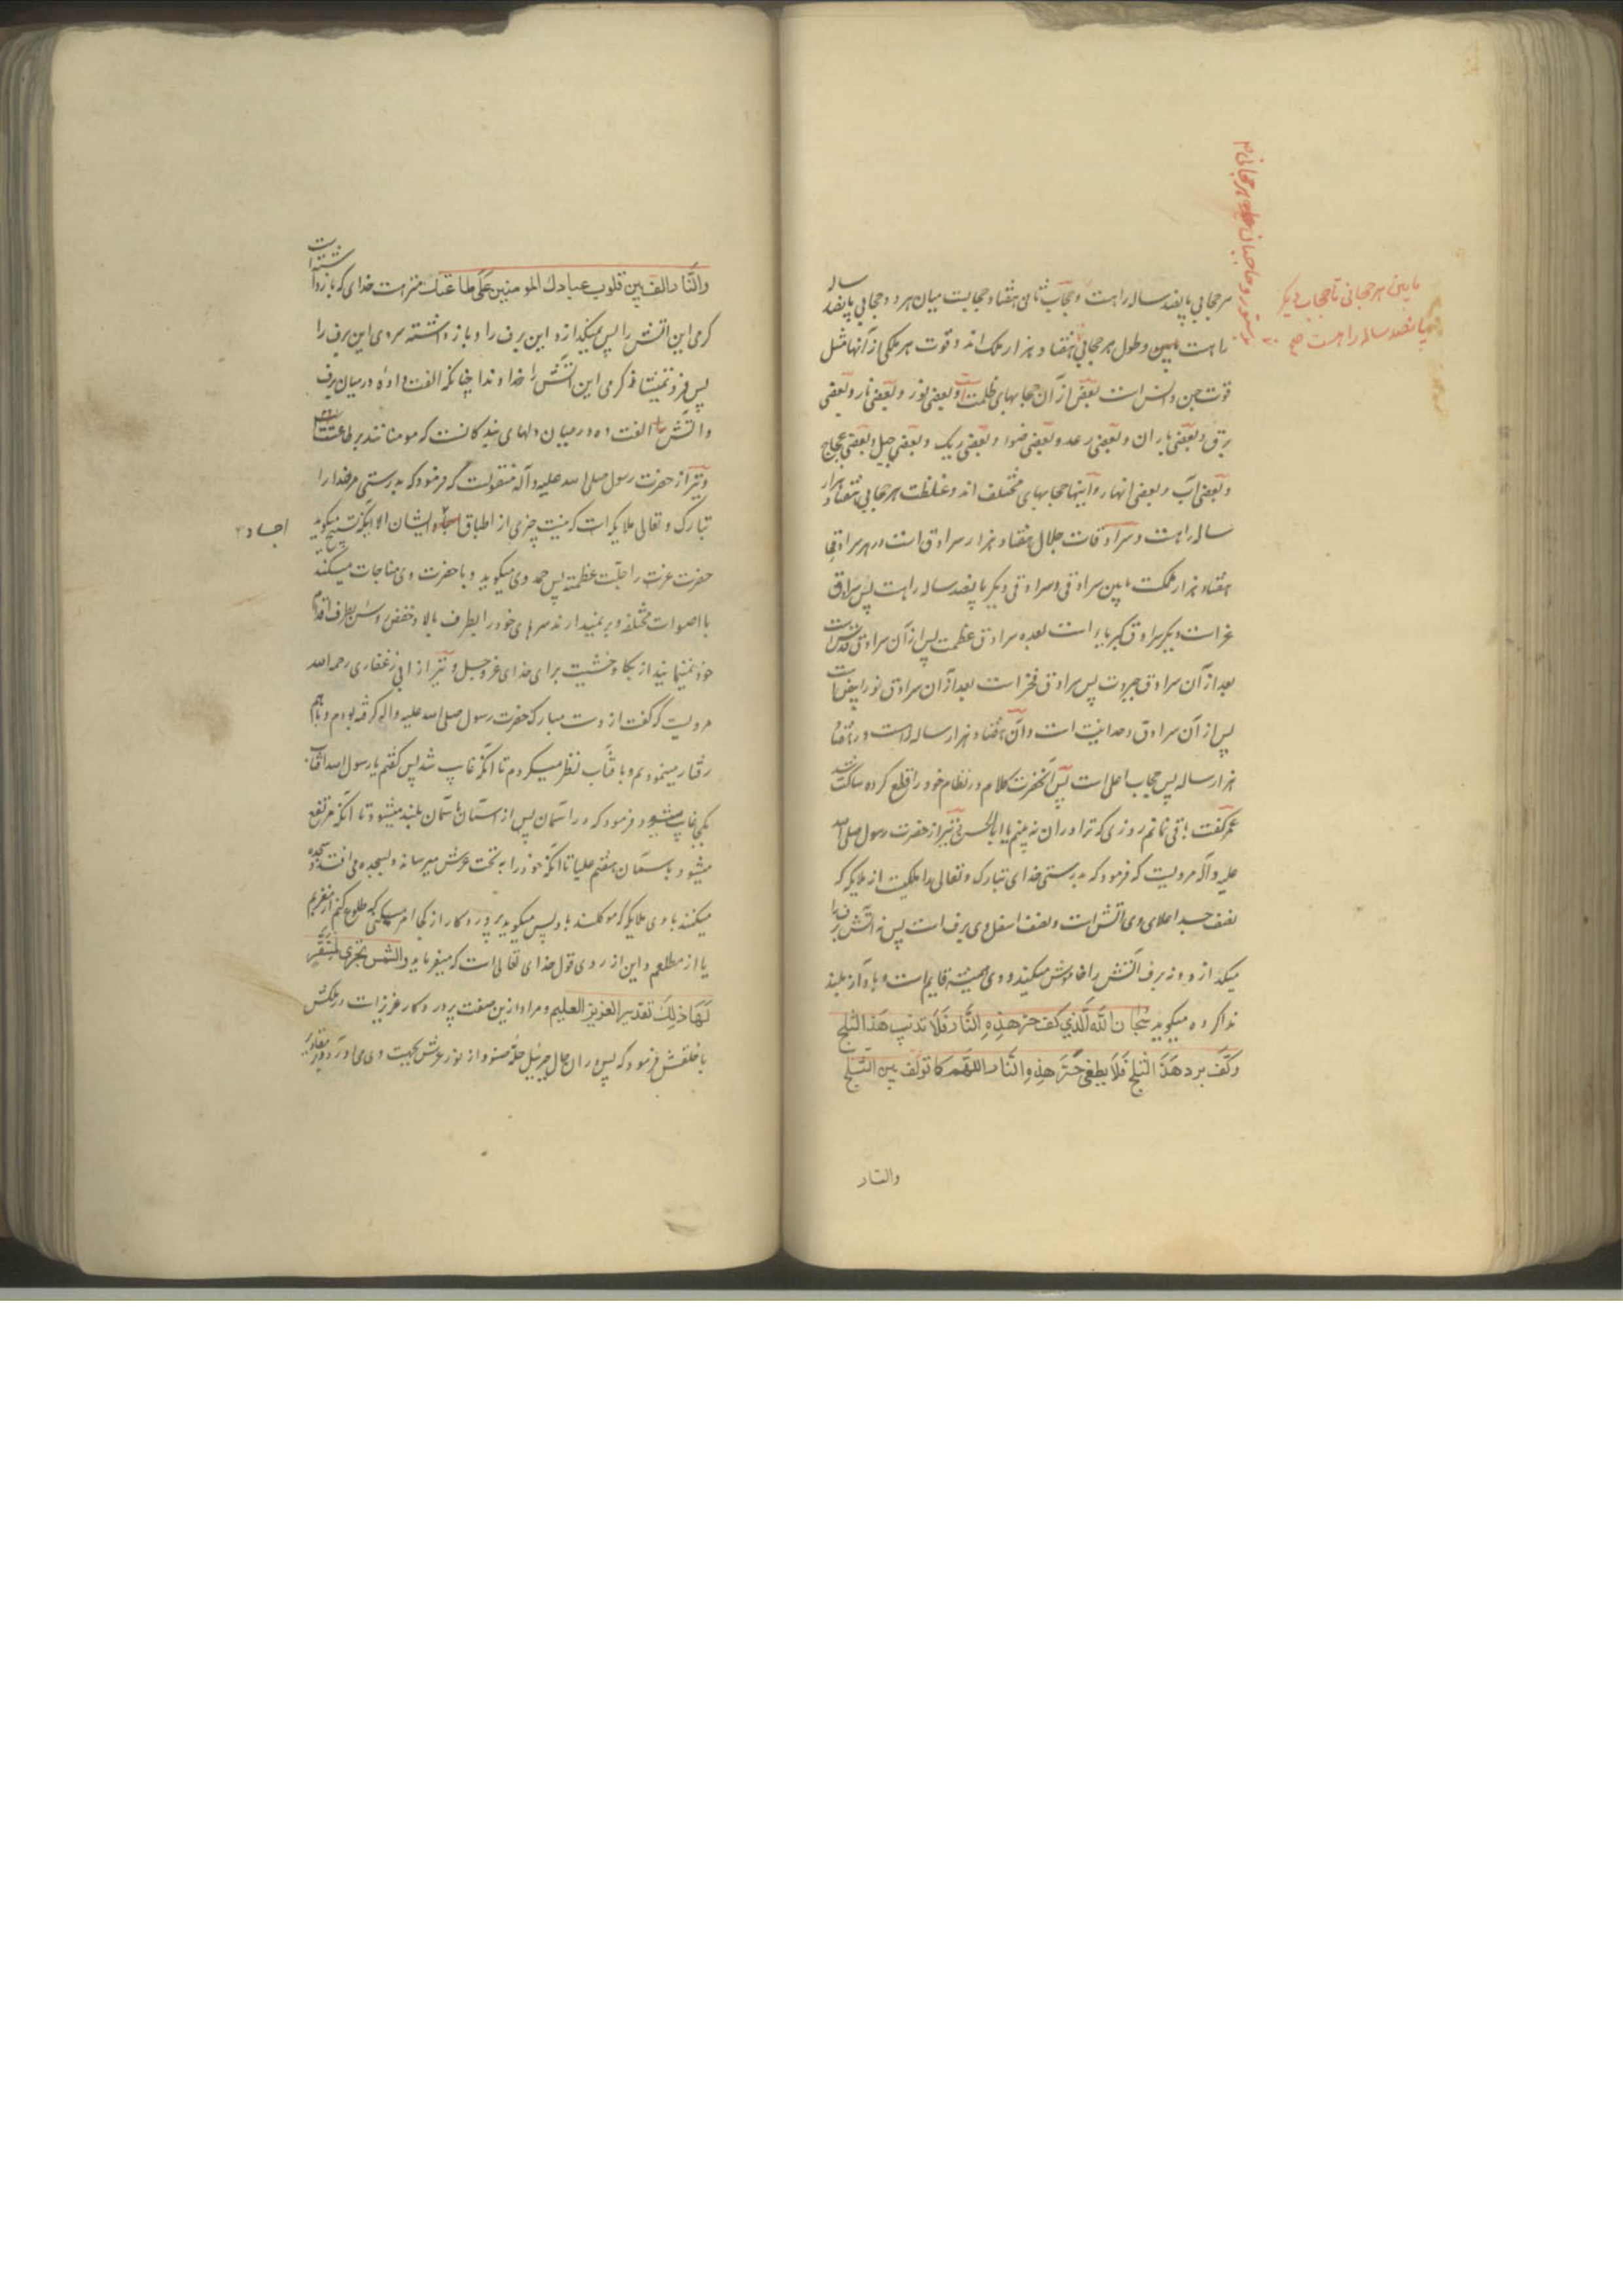 هر حجابی پانصد ساله راهست و حجاب ثانی هفتاد حجابیست میان هر دو حجابی پانصد ساله
راهست مابین و طول هر حجابی هفتاد هزار ملک اند و قوت هر ملکی از آنها مثل
قوت جن و انس است بعضی از آن حجابهای ظلمت است و بعضی نور و بعضی نار و بعضی
برق و بعضی باران و بعضی رعد و بعضی ضوء و بعضی ریک و بعضی جبل و بعضی عجاج
و بعضی آب و بعضی انهار و اینها حجابهای مختلف اند و غلظت هر حجابی هفتاد هزار
ساله راهست و سرادقات جلال هفتاد هزار سرادق است در هر سرادقی
هفتاد هزار ملکست مابین سرادقی و سرادقی دیکر پانصد ساله راهست پس سرادق
عز است دیکر سرادق کبریا است بعده سرادق عظمت پس از آن سرادق قدس است
بعد از آن سرادق جبروت پس سرادق فخر است بعد از آن سرادق نور ابیض است
پس از آن سرادق وحدانیت است و آن هفتاد هزار ساله راهست در هفتاد
هزار ساله پس حجاب اعلی است پس آنحضرت کلام در نظام خود را قطع کرده ساکت شد
عمر کفت باقی نمانم روزی که ترا در آن نه بینم یا ابا الحسن و نیز از حضرت رسول صلی الله
علیه و آله مرویست که فرمود که بدرستی خدای تبارک و تعالی را ملکیست از ملایکه که
نصف جسد اعلای وی آتش است و نصف اسفل وی برف است پس نه آتش برف را
میکدازد و نه برف آتش را خاموش میکند و وی همیشه قایم است و به آواز بلند
ندا کرده میکوید سُبحان اللّه الّذي کف حر هذِهِ النَّار فَلَا تذيب هَذا الثلج
و کَفَّ برد هَذَا الثلج فَلَا يطفي حَرَّ هذِهِ النَّار اللّهم يا مؤلف بين الثلج
والنار
مابین هر حجابی تا حجاب دیکر
پانصد ساله راهست صح
والنَّار الف بين قلوب عبادك المومنين عَلَى طاعتك منزهست خدای که بازداشته است
کرمی این آتش را پس نمیکدازد این برف را و باز داشته سردی این برف را
پس فرو نمینشاند کرمی این آتش را خداوندا چنانکه الفت داده درمیان برف
و آتش الفت ده درمیان دلهای بندکانت که مومنانند بر طاعتت
و نیز از حضرت رسول صلی الله علیه و آله منقولست که فرمود که بدرستی مر خدا را
تبارک و تعالی ملایکه است که نیست چیزی از اطباق ایشان الا آنکه تسبیح میکوید
اجساد
حضرت عزت را جلّت عظمته پس حمد وی میکوید و با حضرت وی مناجات میکند
با اصوات مختلفه و بر نمیدارند سرهای خود را بطرف بالا و خفض راس بطرف اقدام
خود نمینمایند از بکا و خشیت برای خدای عزوجل و نیز از ابی ذر غفاری رحمه الله
مرویست که کفت از دست مبارک حضرت رسول صلی الله علیه و اله کرفته بودم و باهم
رفتار مینمودیم و بآفتاب نظر میکردم تا آنکه غایب شد پس کفتم یا رسول الله آفتاب
بکجا غایب میشود فرمود که در آسمان پس از آسمان بآسمان بلند میشود تا آنکه مرتفع
میشود بآسمان هفتم علیا تا آنکه خود را به تحت عرش میرساند و بسجده می افتد و سجده
میکنند با وی ملایکه که موکلند باو پس میکوید پروردکار از کجا امر میکنی که طلوع کنم از مغربم
یا از مطلعم و این از روی قول خدای تعالی است که میفرماید والشمس تجري لمُستَقَرٍّ
لَهَا ذلِكَ تقدير العزيز العليم و مراد ازین صفت پروردکار عزیز است در ملکش
با خلقش فرمود که پس در آن حال جبرئیل حلّه ضوء از نور عرش بجهت وی می آورد